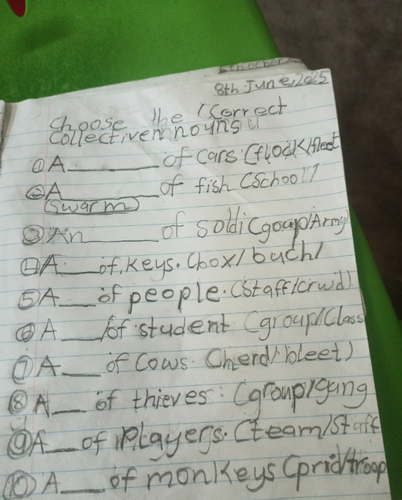 8th June, 2025
Choose the Correct
Collective nouns
① A ______ of cars. (flock/fleet
② A ______ of fish (School/
(Swarm)
③ An ______ of soldi (goup/Army
④ A ___ of keys. (box/buch/
⑤ A ___ of people. (Staff/crwd)
⑥ A ___ of student (group/Class
⑦ A ___ of Cows. (herd/bleet)
⑧ A ___ of thieves. (group/gung
⑨ A ___ of Players. (team/Staff
⑩ A ___ of monkeys (prid/troop